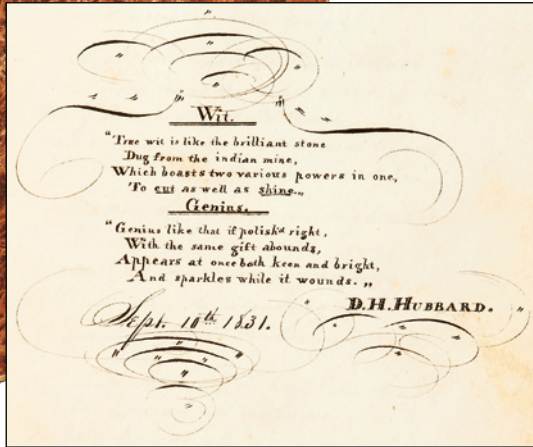 Wit.
"True wit is like the brilliant stone
Dug from the indian mine,
Which boasts two various powers in one,
To cut as well as shine.„
Genius.
"Genius like that if polish'd right,
With the same gift abounds,
Appears at once both keen and bright,
And sparkles while it wounds. „
D. H. HUBBARD.
Sept. 10th 1831.